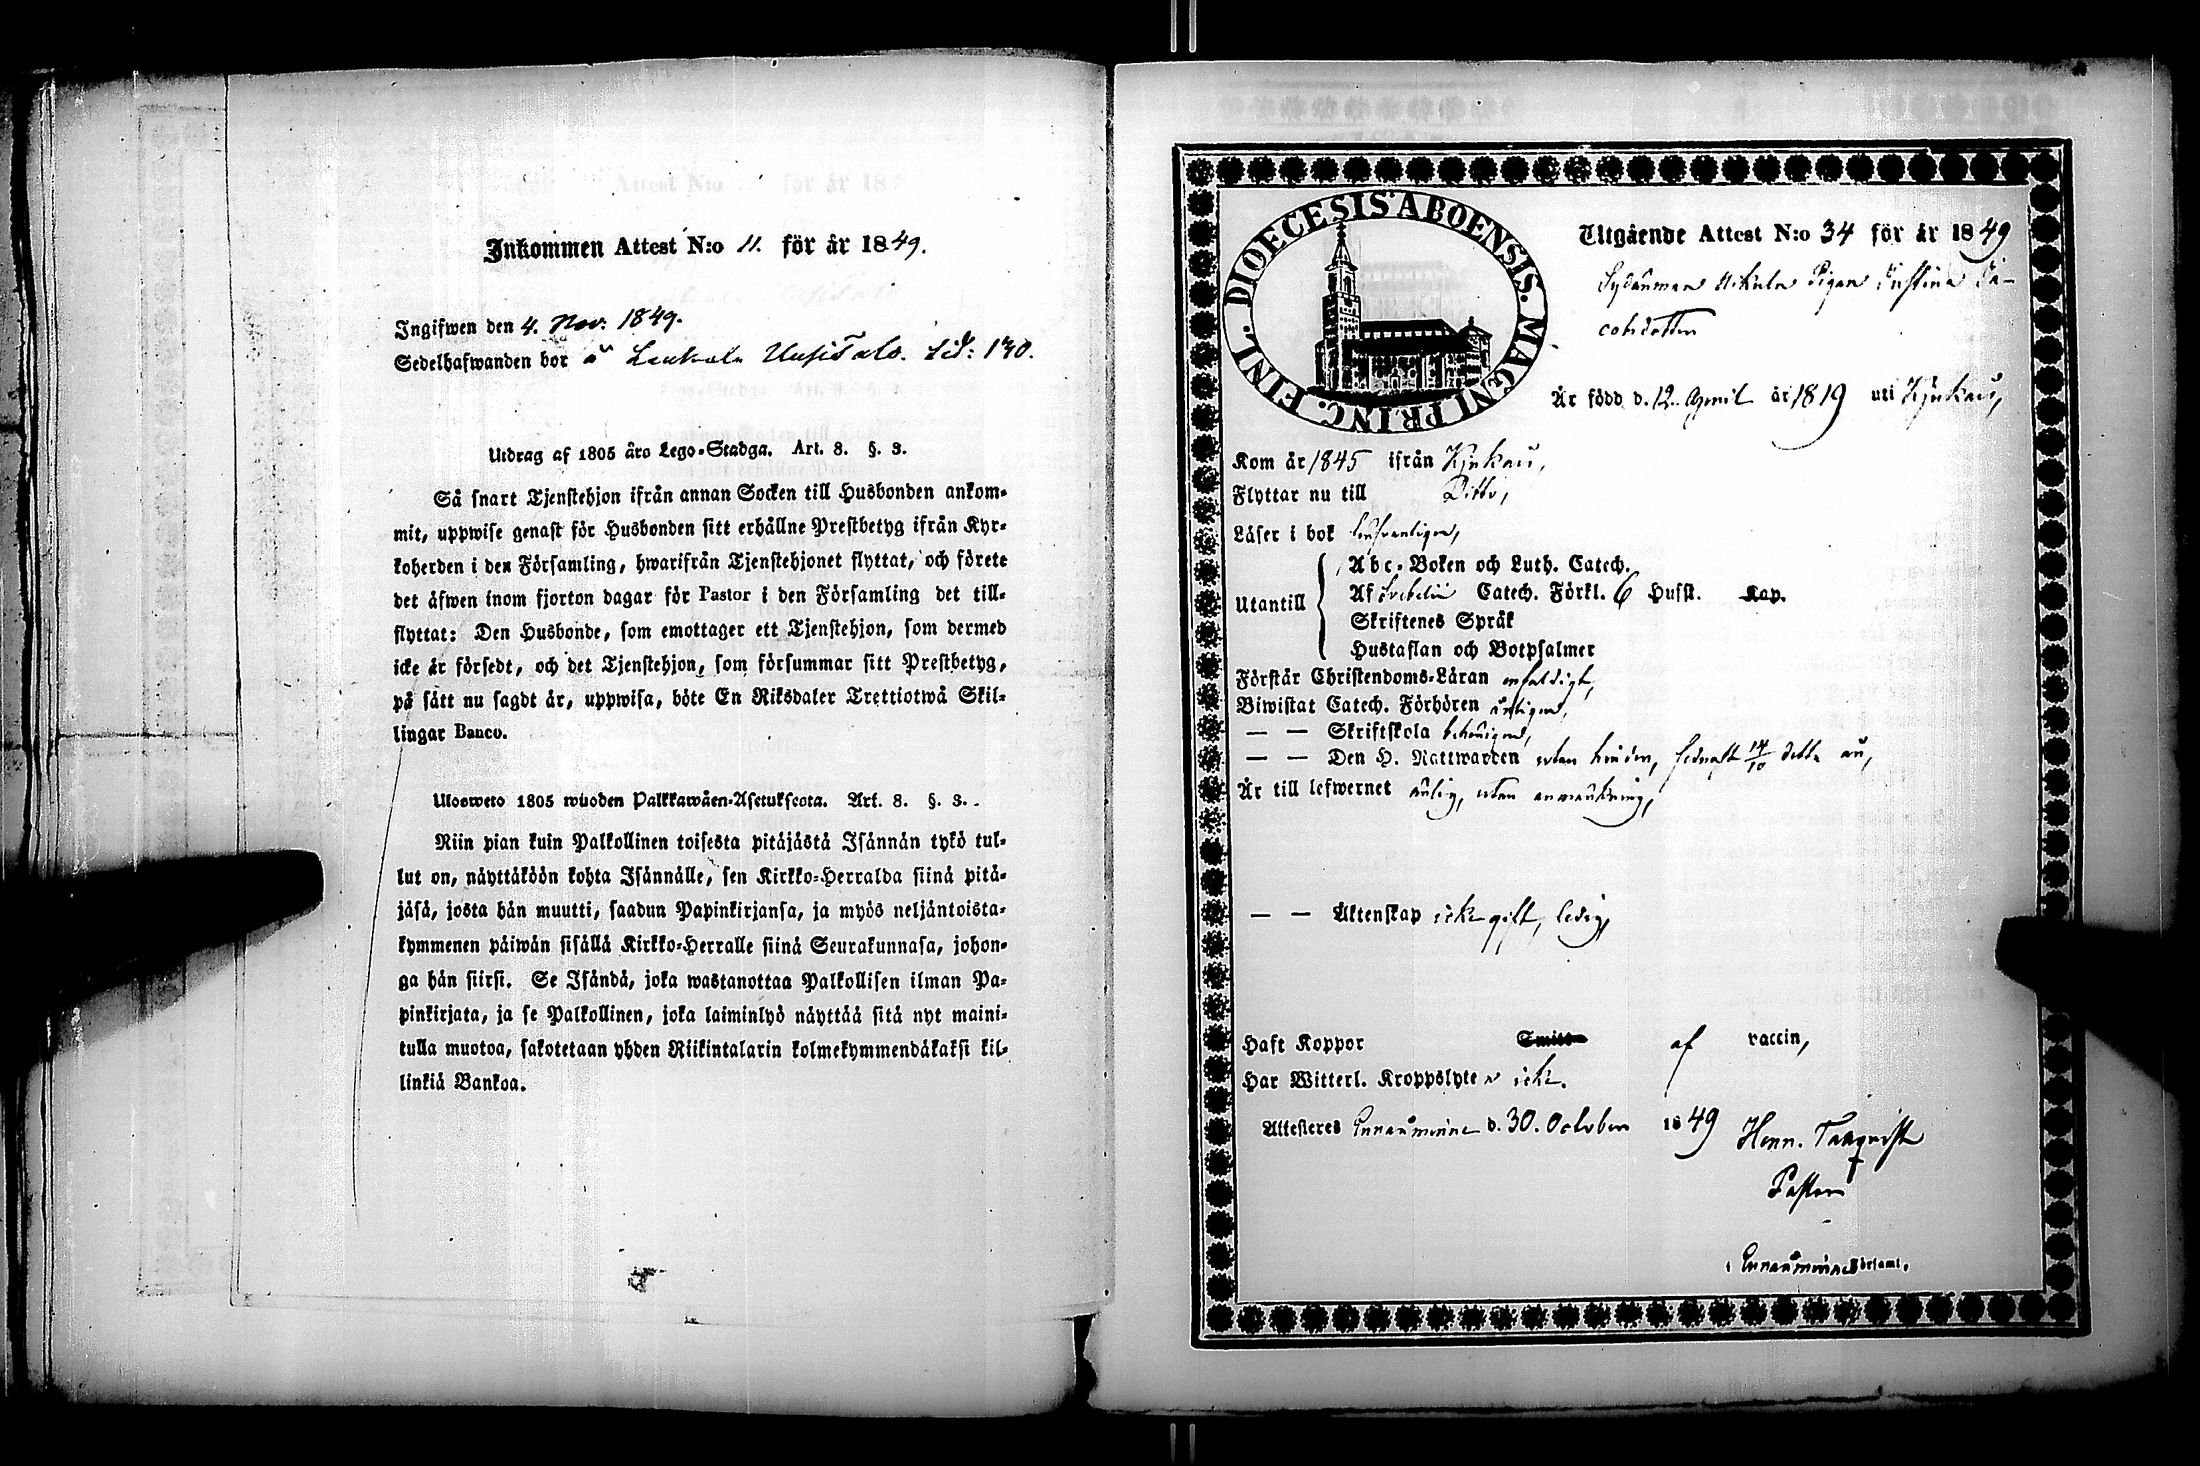 Inkommen Attest N:o 11. för år 1849.
Ingifwen den 4. Nov: 1849.
Sedelhafwanden bor å Uusitalo. Sid: 170.
Utdrag af 1805 års Lego-Stadga. Art. 8. §. 3.
Så snart Tjenstehjon ifrån annan Socken till Husbonden ankom-
mit, uppwise genast för Husbonden sitt erhållne Prestbetyg ifrån Kyr-
koherden i den Församling, hwarifrån Tjenstehjonet flyttat, och förete
det äfwen inom fjorton dagar för Pastor i den Församling det till-
flyttat: Den Husbonde, som emottager ett Tjenstehjon, som dermed
icke är försedt, och det Tjenstehjon, som försummar sitt Prestbetyg,
på sätt nu sagdt är, uppwisa, böte En Riksdaler Trettiotwå Skil-
lingar Banco.
Ulosweto 1805 wuoden Palkkawäen-Asetuksesta. Art. 8. §. 3.
Niin pian kuin Palkollinen toisesta pitäjästä Isännän tykö tul-
lut on, näyttäköön kohta Isännälle, sen Kirkko-Herralda siinä pitä-
jäsä, josta hän muutti, saadun Papinkirjansa, ja myös neljäntoista-
kymmenen päiwän sisällä Kirkko-Herralle siinä Seurakunnasa, johon-
ga hän siirsi. Se Isändä, joka wastanottaa Palkollisen ilman Pa-
pinkirjata, ja se Palkollinen, joka laiminlyö näyttää sitä nyt maini-
tulla muotoa, sakotetaan yhden Riikintalarin kolmekymmendäkaksi kil-
linkiä Bankoa.
DIOECESIS ABOENSIS. MAGNI PRINC. FINL.
Utgående Attest N:o 34 för år 1849
Pigan Justina Ja-
cobsdotter
Är född d. 12. April år 1819 uti Kjukais,
Kom år 1845 ifrån Kjukais,
Flyttar nu till Ditto,
Läser i bok
Utantill
Abc-Boken och Luth. Catech.
Af Svebelii Catech. Förkl. 6 Husst. Kap.
Skriftenes Språk
Hustaflan och Botpsalmer
Förstår Christendoms-Läran enfaldigt,
Biwistat Catech. Förhören årligen,
— — Skriftskola behörigen,
— — Den H. Nattwarden utan hinder, sednast 14/10 detta år,
Är till lefwernet ärlig, utan anmärkning,
— — Äktenskap icke gift, ledig,
Haft Koppor Smitt- af vaccin,
Har Witterl. Kroppslyte icke.
Attesteras Ennaminne d. 30. October 1849 Henr. Tanqvist
Pastor
i Ennaminne Församl.